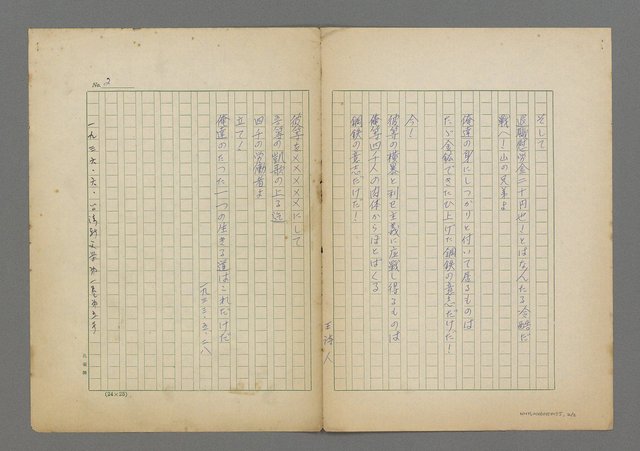 そして
退職慰労金二十円也!とはなんたる冷酷だ
戦へ!山の兄弟よ
俺達の身にしつかりと付いて居るものは
たゞ金鉱できたひ上げた鋼鉄の意志だけだ!
今!
彼等の横暴と利己主義に応戦し得るものは
俺等四千人の肉体からほとばしる
鋼鉄の意志だけだ!
王詩人
No. 2
彼等を×××××にして
吾等の凱歌の上る迄
四千の労働者よ
立て!
俺達のたつた一つの生きる道はこれだけだ
一九三三・五・二八
一九三六・六・台湾新文学第一巻第五号
(24×25)